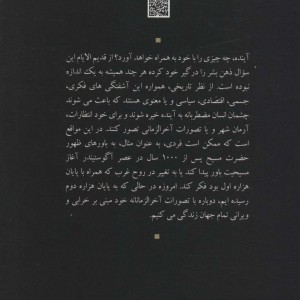 آینده، چه چیزی را با خود به همراه خواهد آورد؟ از قدیم الایام این
سؤال ذهن بشر را درگیر خود کرده هر چند همیشه به یک اندازه
نبوده است. از نظر تاریخی، همواره این آشفتگی های فکری،
جسمی، اقتصادی، سیاسی و یا معنوی هستند که باعث می شوند
چشمان انسان مضطربانه به آینده خیره شوند و برای خود انتظارات،
آرمان شهر و یا تصورات آخرالزمانی تصور کنند. در این مواقع
است که ممکن است فردی، به عنوان مثال، به باورهای ظهور
حضرت مسیح پس از ۱۰۰۰ سال در عصر آگوستیندر آغاز
مسیحیت باور پیدا کند یا به تغییر در روح غرب که همراه با پایان
هزاره اول بود فکر کند. امروزه در حالی که به پایان هزاره دوم
رسیده ایم، دوباره با تصورات آخرالزمانانه خود مبنی بر خرابی و
ویرانی تمام جهان زندگی می کنیم.